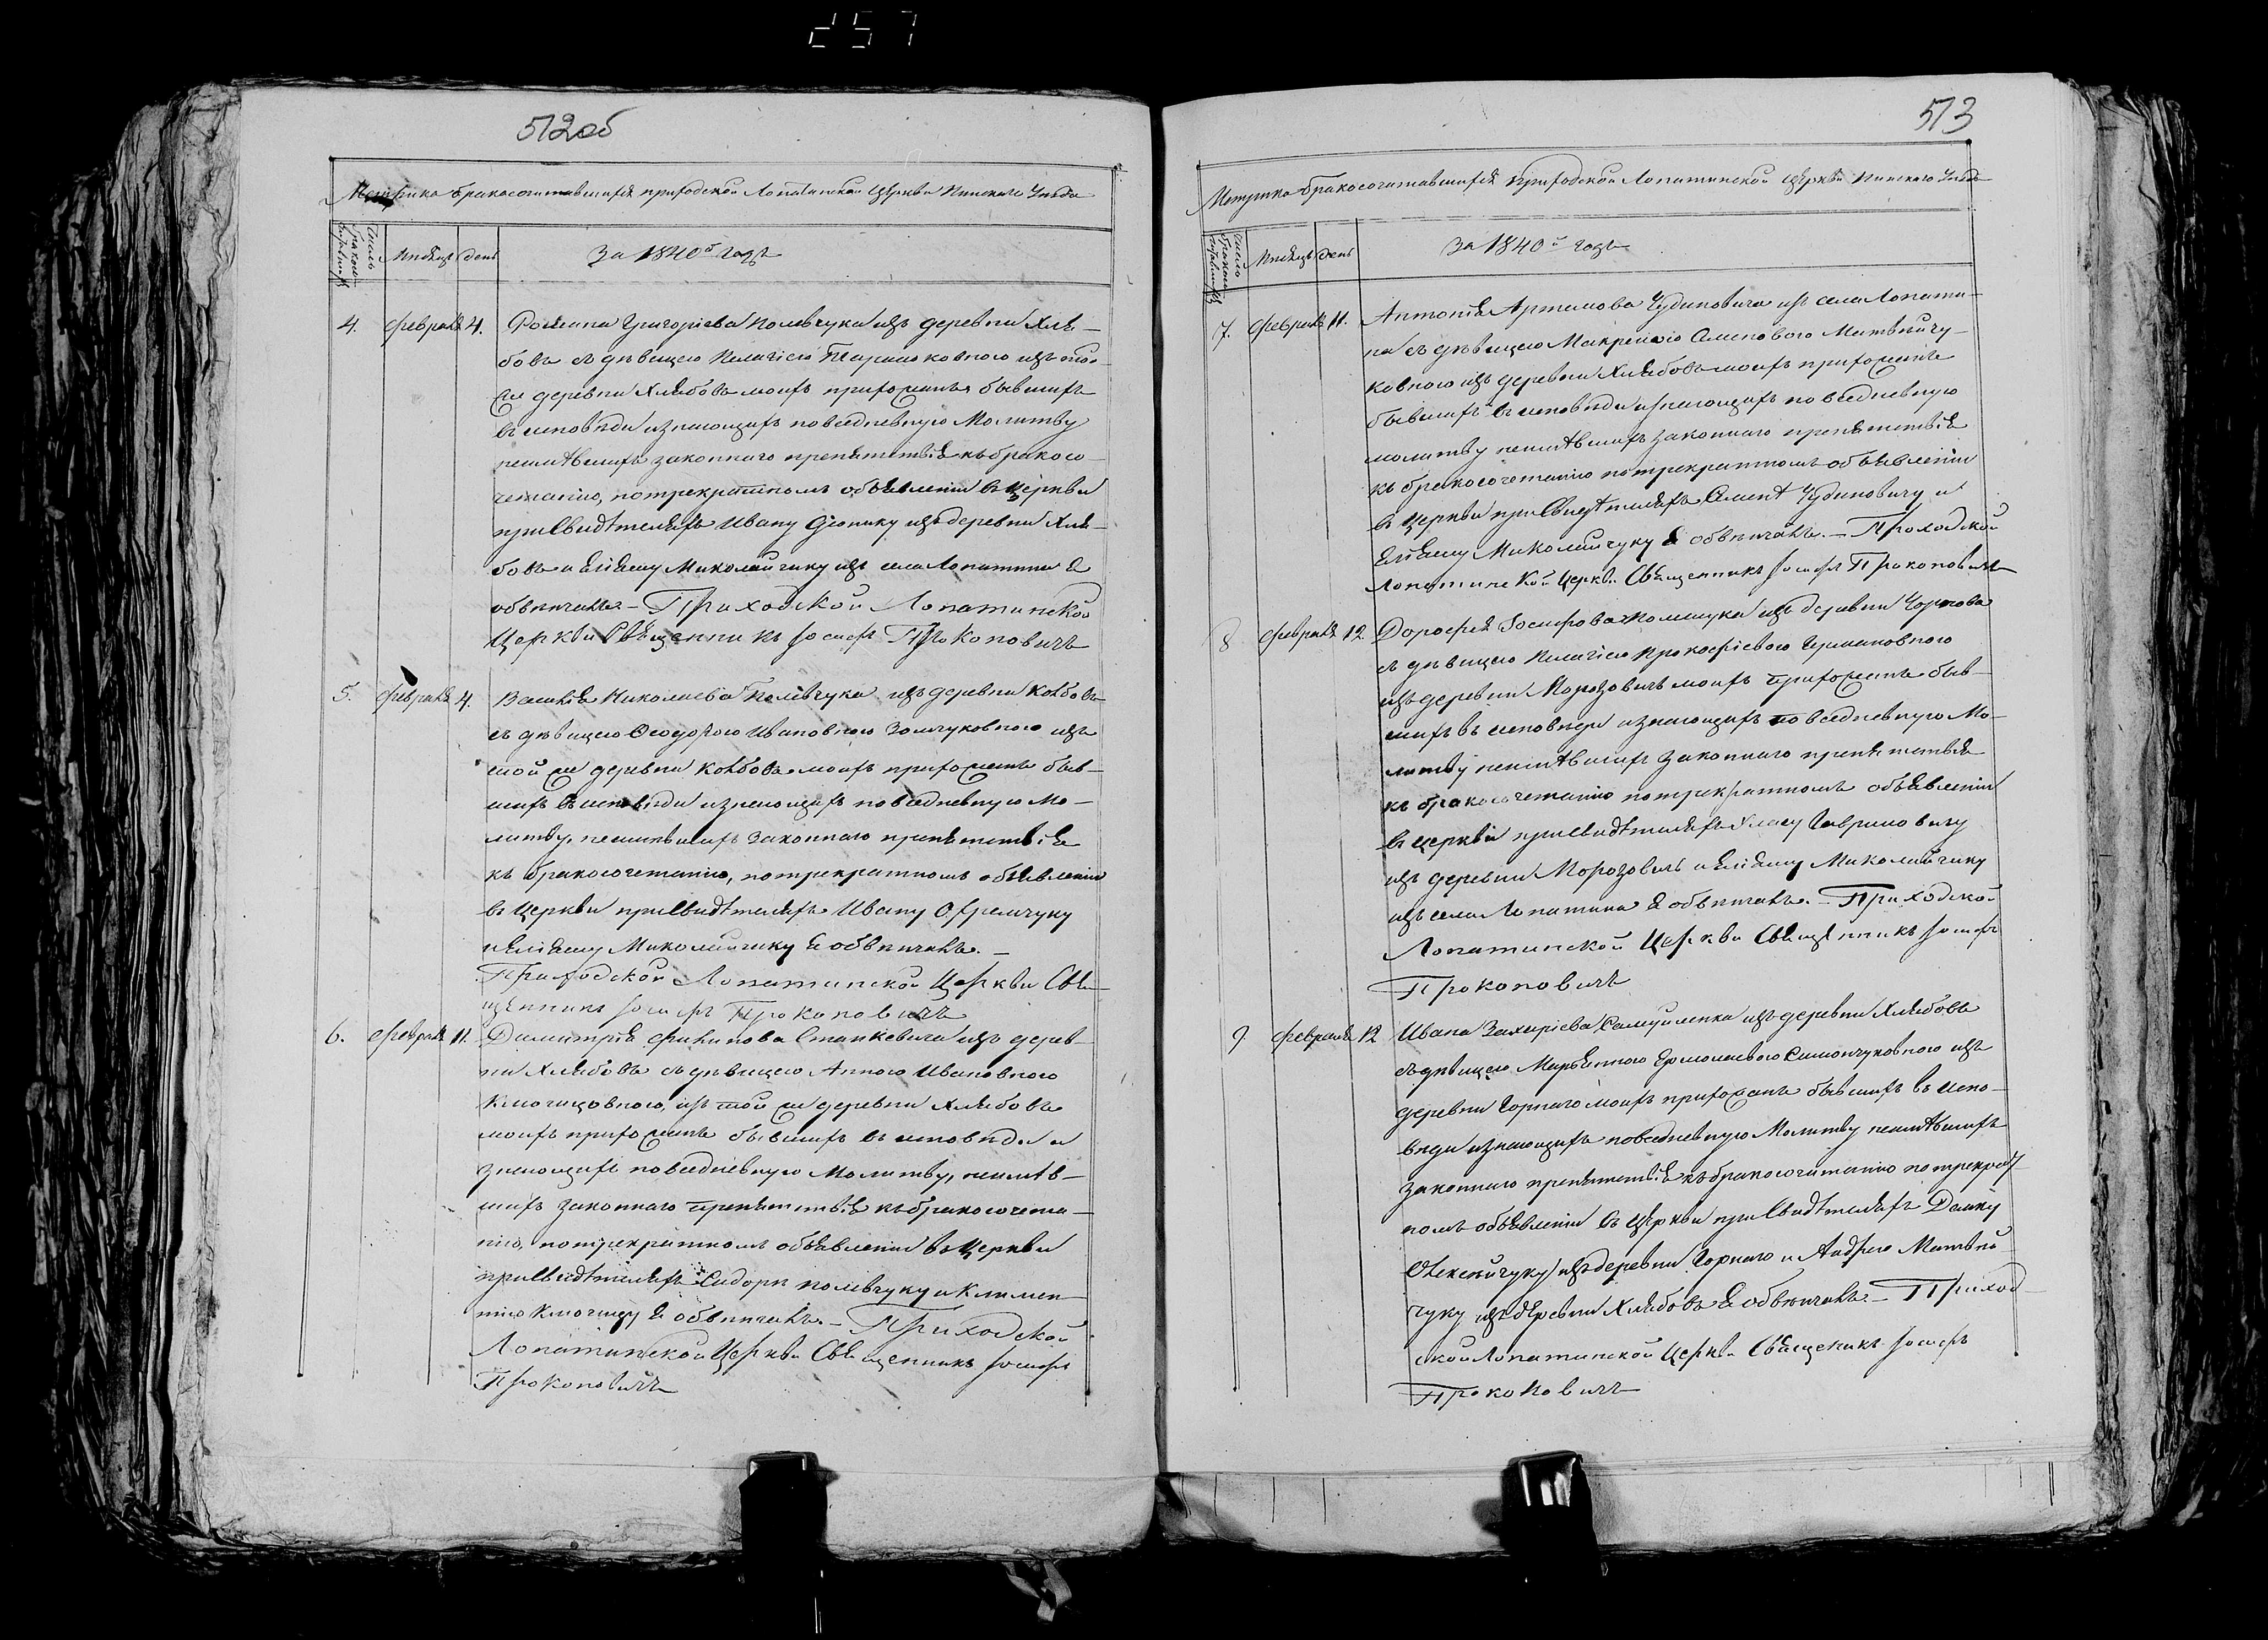 257
512об
Метрика бракосочитавшихся приходской Лопатинской Церкви Пинского Уезда
Число бракосочетавшихся
Месяцъ
день
За 1840й годъ
4.
февраля
4.
Романа Григоріева Полевчука изъ деревни Хля-
бовъ съ девицею Пелагіею изъ той
же деревни Хлябовъ моихъ прихожанъ бывшихъ
въ исповѣди и знающихъ повседневную Молитву
неимѣвшихъ законнаго препятствія къ бракосо-
четанію, по трекратномъ объявленіи въ Церкви
при Свидѣтеляхъ Ивану изъ деревни Хля-
бовъ и Еліяшу Миколайчику изъ села Лопатина я
обвѣнчалъ. – Приходской Лопатинской
Церкви Священникъ Іосифъ Прокоповичъ
5.
февраля
4.
Василія Николаева Полевчука изъ деревни Колбовъ
съ девицею Феодорою Ивановною изъ
той же деревни Колбовъ моихъ прихожанъ быв-
шихъ въ исповѣди и знающихъ повседневную Мо-
литву, неимѣвшихъ законнаго препятствія
къ бракосочетанію, по трекратномъ объявленіи
въ Церкви при Свидѣтеляхъ Ивану Офремчуку
и Еліяшу Миколайчику я обвѣнчалъ. –
Приходской Лопатинской Церкви Свя-
щенникъ Іосифъ Прокоповичъ
6.
февраля
11.
Димитрія Филипова Станкевича изъ дерев-
ни Хлябовъ съ девицею Анною Ивановною
изъ той же деревни Хлябовъ
моихъ прихожанъ бывшихъ въ исповѣди и
знающихъ повседневную Молитву, неимѣв-
шихъ законнаго препятствія къ бракосочета-
нію, по трекратномъ объявленіи въ Церкви
при Свидѣтеляхъ Сидору Полевчуку и Климен-
тію я обвѣнчалъ. – Приходской
Лопатинской Церкви Священникъ Іосифъ
Прокоповичъ
513
Метрика бракосочитавшихся Приходской Лопатинской Церкви Пинского Уезда
Число бракосочетавшихся
Месяцъ
день
За 1840й годъ
7.
февраля
11.
Антонія Артемова Чудиновича изъ села Лопати-
на съ девицею Макриною Семеновою Матвейчу-
ковною изъ деревни Хлябовъ моихъ прихожанъ
бывшихъ въ исповѣди и знающихъ повседневную
молитву неимѣвшихъ законнаго препятствія
къ бракосочетанію по трекратномъ объявленіи
въ Церкви при Свидѣтеляхъ Чудиновичу и
Еліяшу Миколайчуку я обвѣнчалъ. – Приходской
Лопатинской Церкви Священникъ Іосифъ Прокоповичъ
8
февраля
12
Дорофея Іосифова изъ деревни
съ девицею Пелагіею Прокофіевою
изъ деревни Морозовичъ моихъ прихожанъ быв-
шихъ въ исповѣди и знающихъ повседневную Мо-
литву неимѣвшихъ законнаго препятствія
къ бракосочетанію по трекратномъ объявленіи
въ Церкви при Свидѣтеляхъ Гавриловичу
изъ деревни Морозовичъ и Еліяшу Миколайчику
изъ села Лопатина я обвѣнчалъ. – Приходской
Лопатинской Церкви Священникъ Іосифъ
Прокоповичъ
9
февраля
12
Ивана Захаріева Самуйленка изъ деревни Хлябовъ
съ девицею Марьянною Ермолаевою Симончуковною изъ
деревни моихъ прихожанъ бывшихъ въ испо-
веди и знающихъ повседневную Молитву неимѣвшихъ
законнаго препятствія къ бракосочитанію по трекрат-
номъ объявленіи въ Церкви при Свидѣтеляхъ
Олексейчуку изъ деревни и Андрею Матвей-
чуку изъ деревни Хлябовъ я обвѣнчалъ. – Приход-
ской Лопатинской Церкви Священикъ Іосифъ
Прокоповичъ